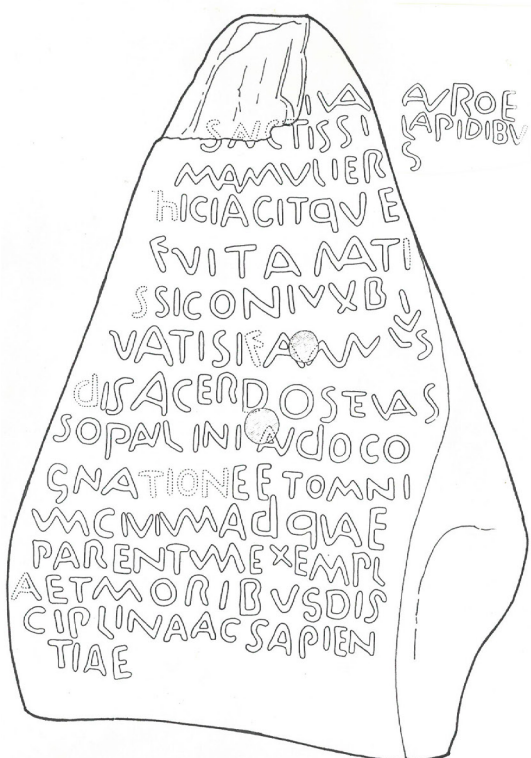 IVA
SANCTISSI
MAMVLIER
hICIACITqVE
FVITAMATI
SSICONIVXBI
VATISIFAMVLVS
dISACERDOSEVAS
SOPAVLINIAVdOCO
GNATIONEETOMNI
VMCIVIVMAdqVAE
PARENTVMEXEMPL
AETMORIBVSDIS
CIPLINAACSAPIEN
TIAE
AVROE
LAPIDIBV
S